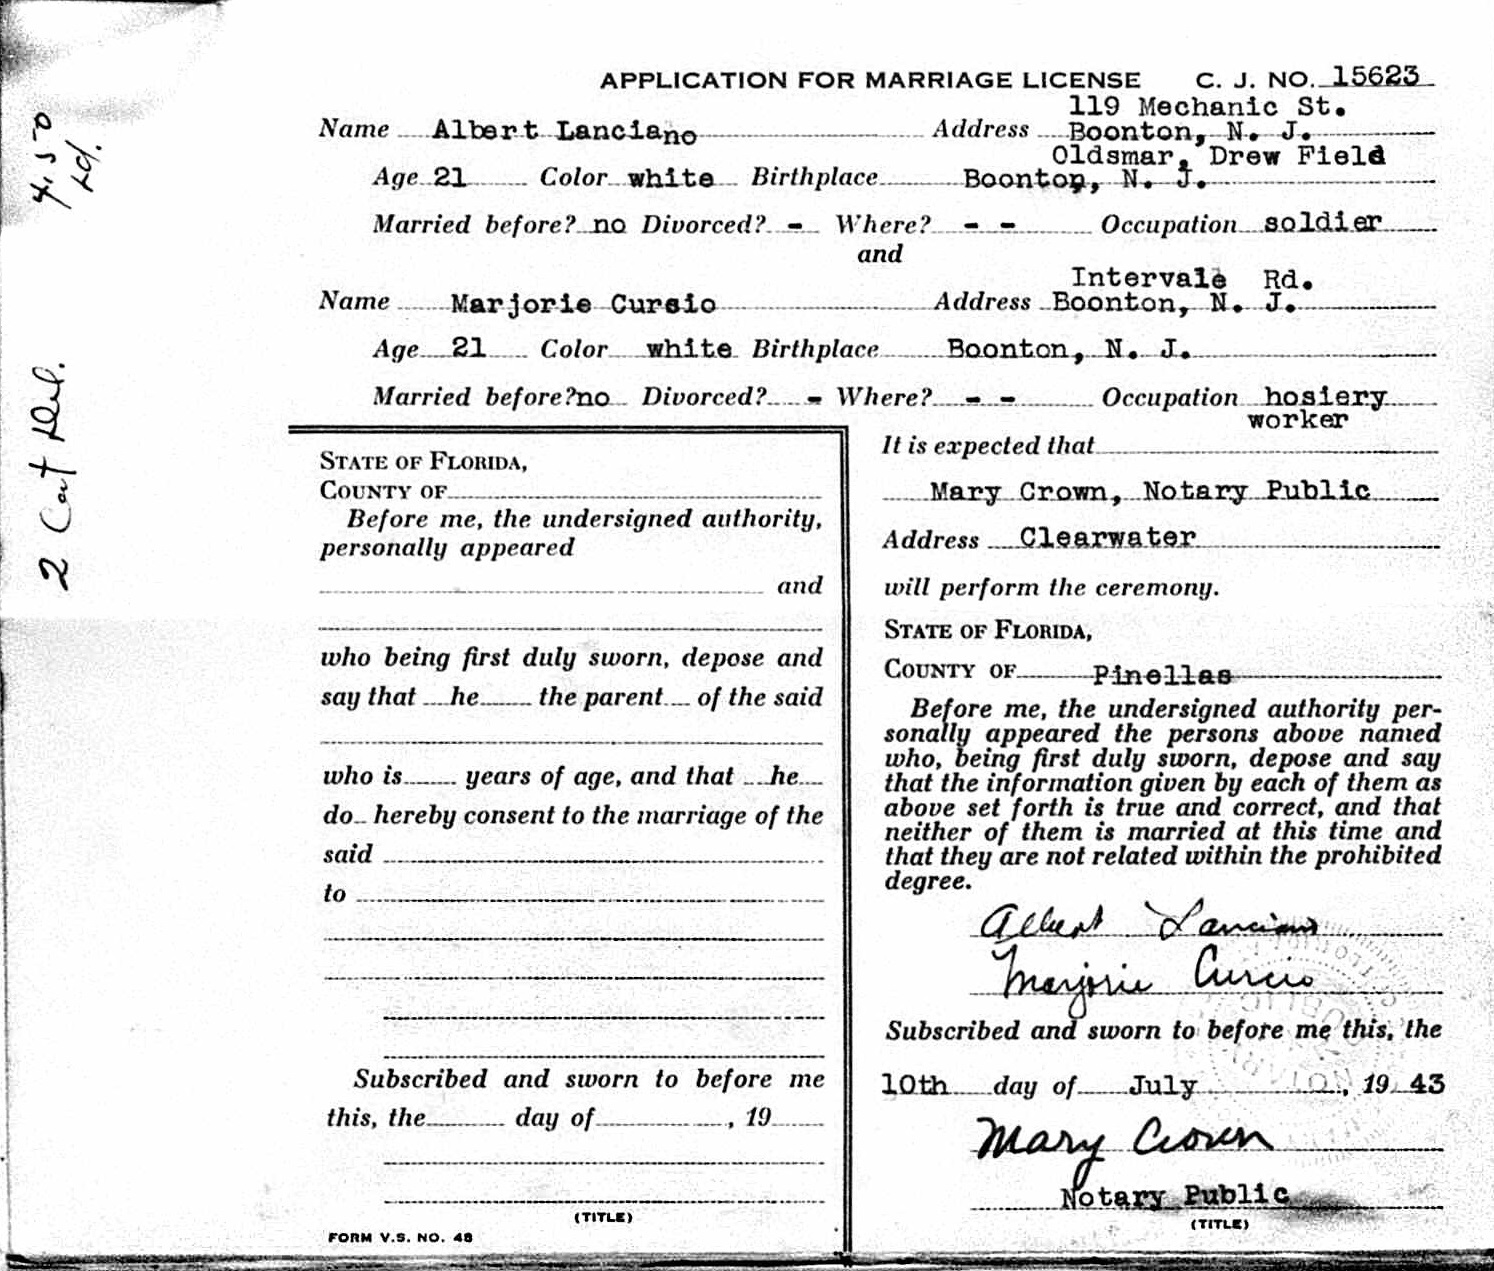 APPLICATION FOR MARRIAGE LICENSE C. J. NO. 15623
119 Mechanic St.
Name Albert Lanciano Address Boonton, N. J.
Oldsmar, Drew Field
Age 21 Color white Birthplace Boonton, N. J.
Married before? no Divorced? - Where? - - Occupation soldier
and
Intervale Rd.
Name Marjorie Cursio Address Boonton, N. J.
Age 21 Color white Birthplace Boonton, N. J.
Married before? no Divorced? - Where? - - Occupation hosiery
worker
STATE OF FLORIDA,
COUNTY OF
Before me, the undersigned authority,
personally appeared
and
who being first duly sworn, depose and
say that he the parent of the said
who is years of age, and that he
do hereby consent to the marriage of the
said
to
Subscribed and sworn to before me
this, the day of , 19
(TITLE)
FORM V.S. NO. 48
It is expected that
Mary Crown, Notary Public
Address Clearwater
will perform the ceremony.
STATE OF FLORIDA,
COUNTY OF Pinellas
Before me, the undersigned authority per-
sonally appeared the persons above named
who, being first duly sworn, depose and say
that the information given by each of them as
above set forth is true and correct, and that
neither of them is married at this time and
that they are not related within the prohibited
degree.
Albert Lanciano
Marjorie Curcio
Subscribed and sworn to before me this, the
10th day of July , 19 43
Mary Crown
Notary Public
(TITLE)
4.50
2 Cert Del.